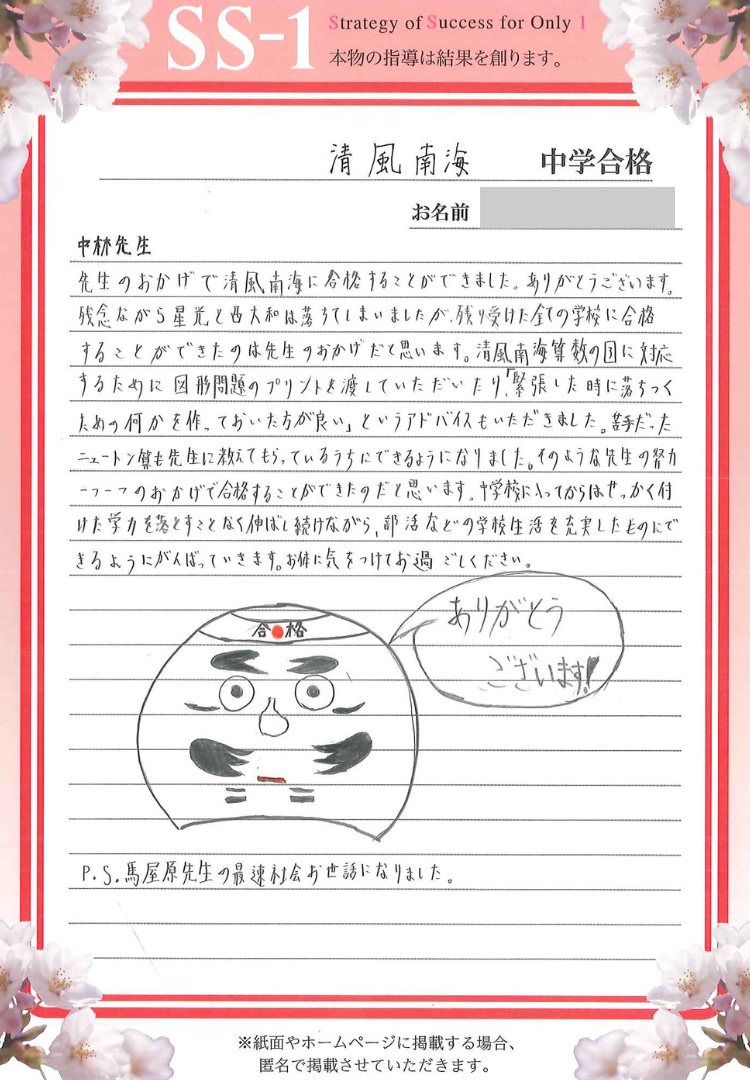 SS-1
Strategy of Success for Only 1
本物の指導は結果を創ります。
清風南海 中学合格
お名前
中林先生
先生のおかげで清風南海に合格することができました。ありがとうございます。
残念ながら星光と西大和は落ちてしまいましたが、残り受けた全ての学校に合格
することができたのは先生のおかげだと思います。清風南海算数の図に対応
するために図形問題のプリントを渡していただいたり、「緊張した時に落ちつく
ための何かを作っておいた方が良い」というアドバイスもいただきました。苦手だった
ニュートン算も先生に教えてもらっているうちにできるようになりました。そのような先生の努力
一つ一つのおかげで合格することができたのだと思います。中学校に入ってからはせっかく付
けた学力を落とすことなく伸ばし続けながら、部活などの学校生活を充実したものにで
きるようにがんばっていきます。お体に気をつけてお過ごしください。
合格
ありがとう
ございます!
P.S.馬屋原先生の最速社会お世話になりました。
※紙面やホームページに掲載する場合、
匿名で掲載させていただきます。